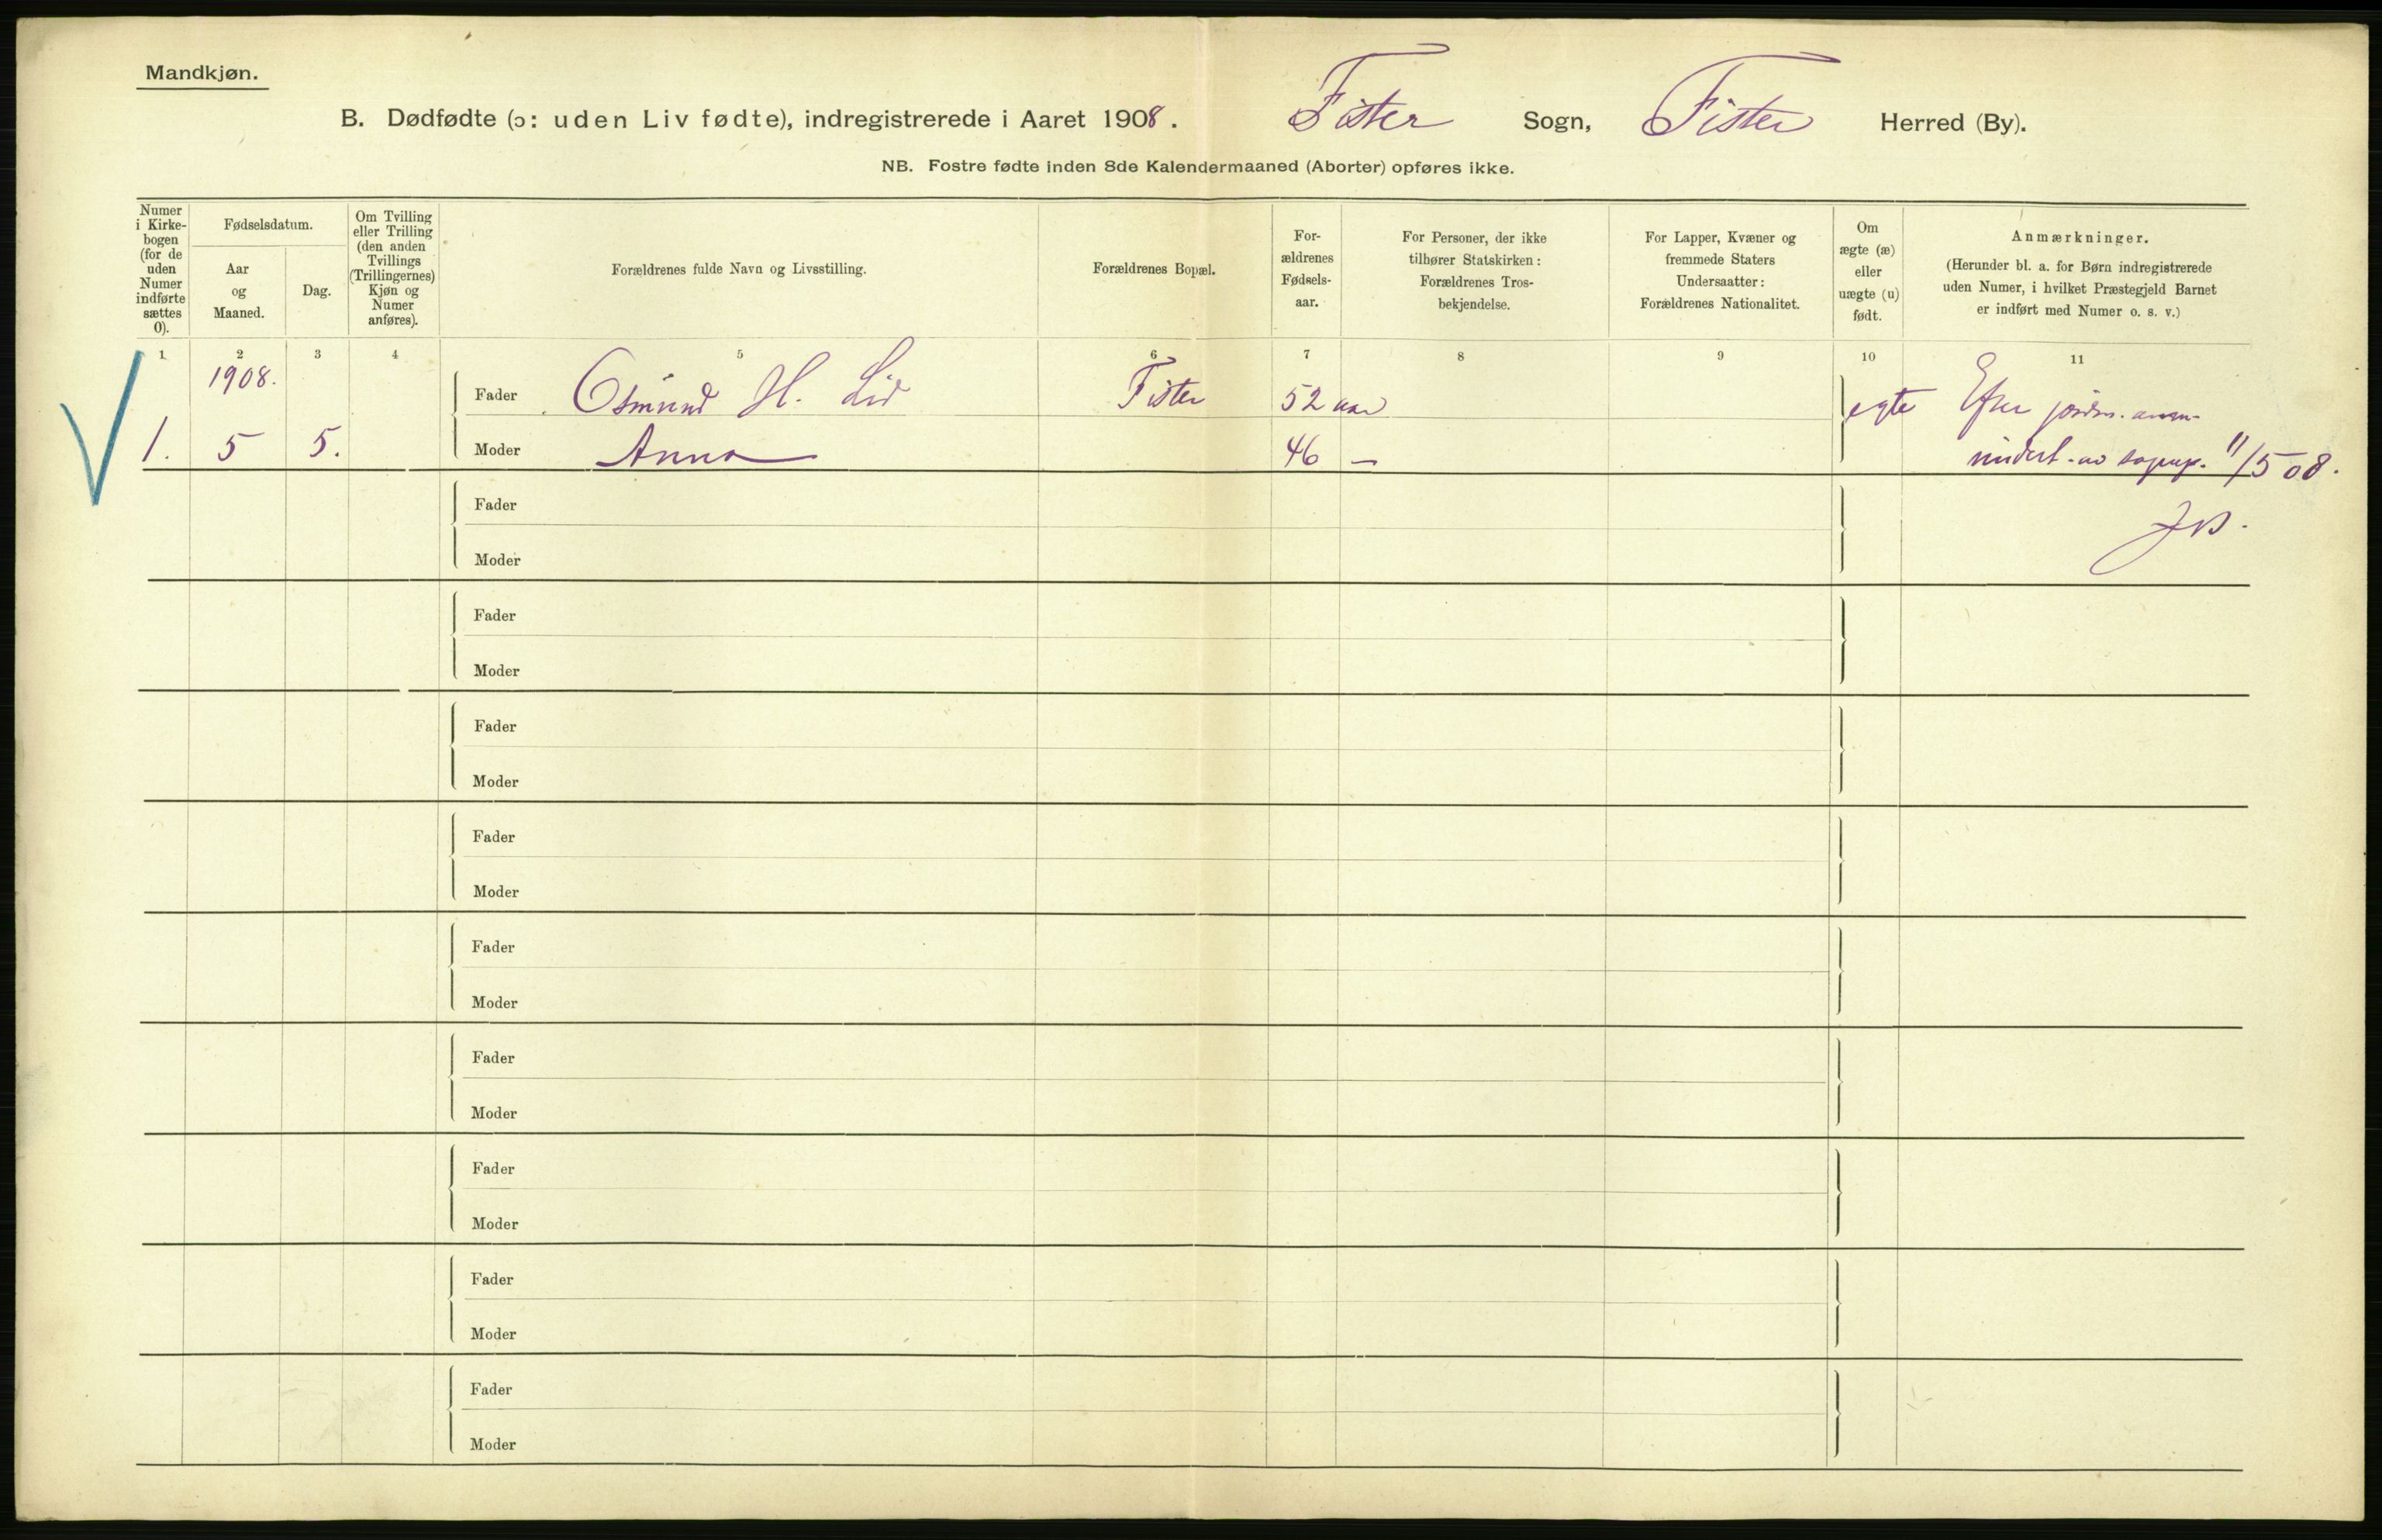 Mandkjøn.
B. Dødfødte (ɔ: uden Liv fødte), indregistrerede i Aaret 1908. Fister Sogn, Fister Herred (By).
NB. Fostre fødte inden 8de Kalendermaaned (Aborter) opføres ikke.
Numer
i Kirke-
bogen
(for de
uden
Numer
indførte
sættes
0).
Fødselsdatum.
Aar
og
Maaned.
Dag.
Om Tvilling
eller Trilling
(den anden
Tvillings
(Trillingernes)
Kjøn og
Numer
anføres).
Forældrenes fulde Navn og Livsstilling.
Forældrenes Bopæl.
For-
ældrenes
Fødsels-
aar.
For Personer, der ikke
tilhører Statskirken:
Forældrenes Tros-
bekjendelse.
For Lapper, Kvæner og
fremmede Staters
Undersaatter:
Forældrenes Nationalitet.
Om
ægte (æ)
eller
uægte (u)
født.
Anmærkninger.
(Herunder bl. a. for Børn indregistrerede
uden Numer, i hvilket Præstegjeld Barnet
er indført med Numer o. s. v.)
1 2 3 4 5 6 7 8 9 10 11
1908.
Fader Osmund H. Lid Fister 52 aar egte Efter jordm.
1. 5 5. Moder Anna 46 — 11/5 08.
Fader
JB.
Moder
Fader
Moder
Fader
Moder
Fader
Moder
Fader
Moder
Fader
Moder
Fader
Moder
Fader
Moder
Fader
Moder